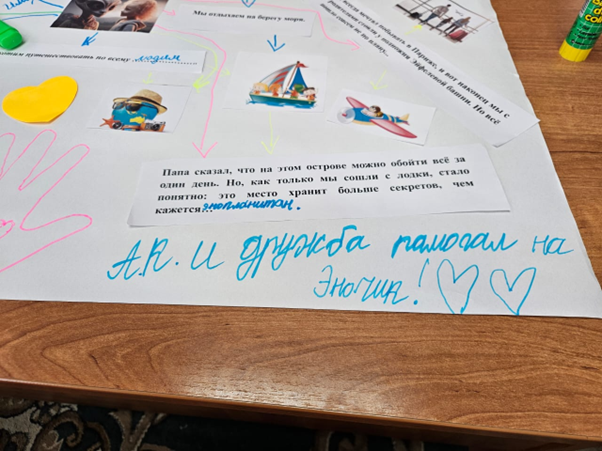 Мы отдыхаем на берегу моря.
путешествовать по всему людям
всегда мечтал побывать в Париже, и вот наконец мы с
родителями стояли у подножия Эйфелевой башни. Но всё
пошло совсем не по плану...
Папа сказал, что на этом острове можно обойти всё за
один день. Но, как только мы сошли с лодки, стало
понятно: это место хранит больше секретов, чем
кажется...энопланитан.
А.К. И дружба памогал на
Эночик!